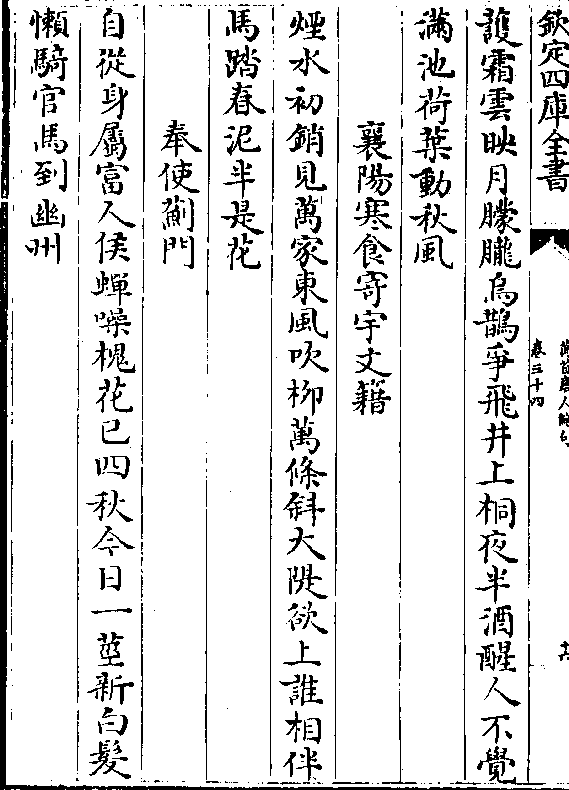 欽定四庫全書
卷三十四
護霜雲映月朦朧烏鵲爭飛井上桐夜半酒醒人不覺
滿池荷葉動秋風
襄陽寒食寄宇文籍
煙水初銷見萬家東風吹栁萬條斜大隄欲上誰相伴
馬踏春泥半是花
奉使薊門
自從身屬富人侯蟬噪槐花已四秋今日一莖新白髮
懶騎官馬到幽州